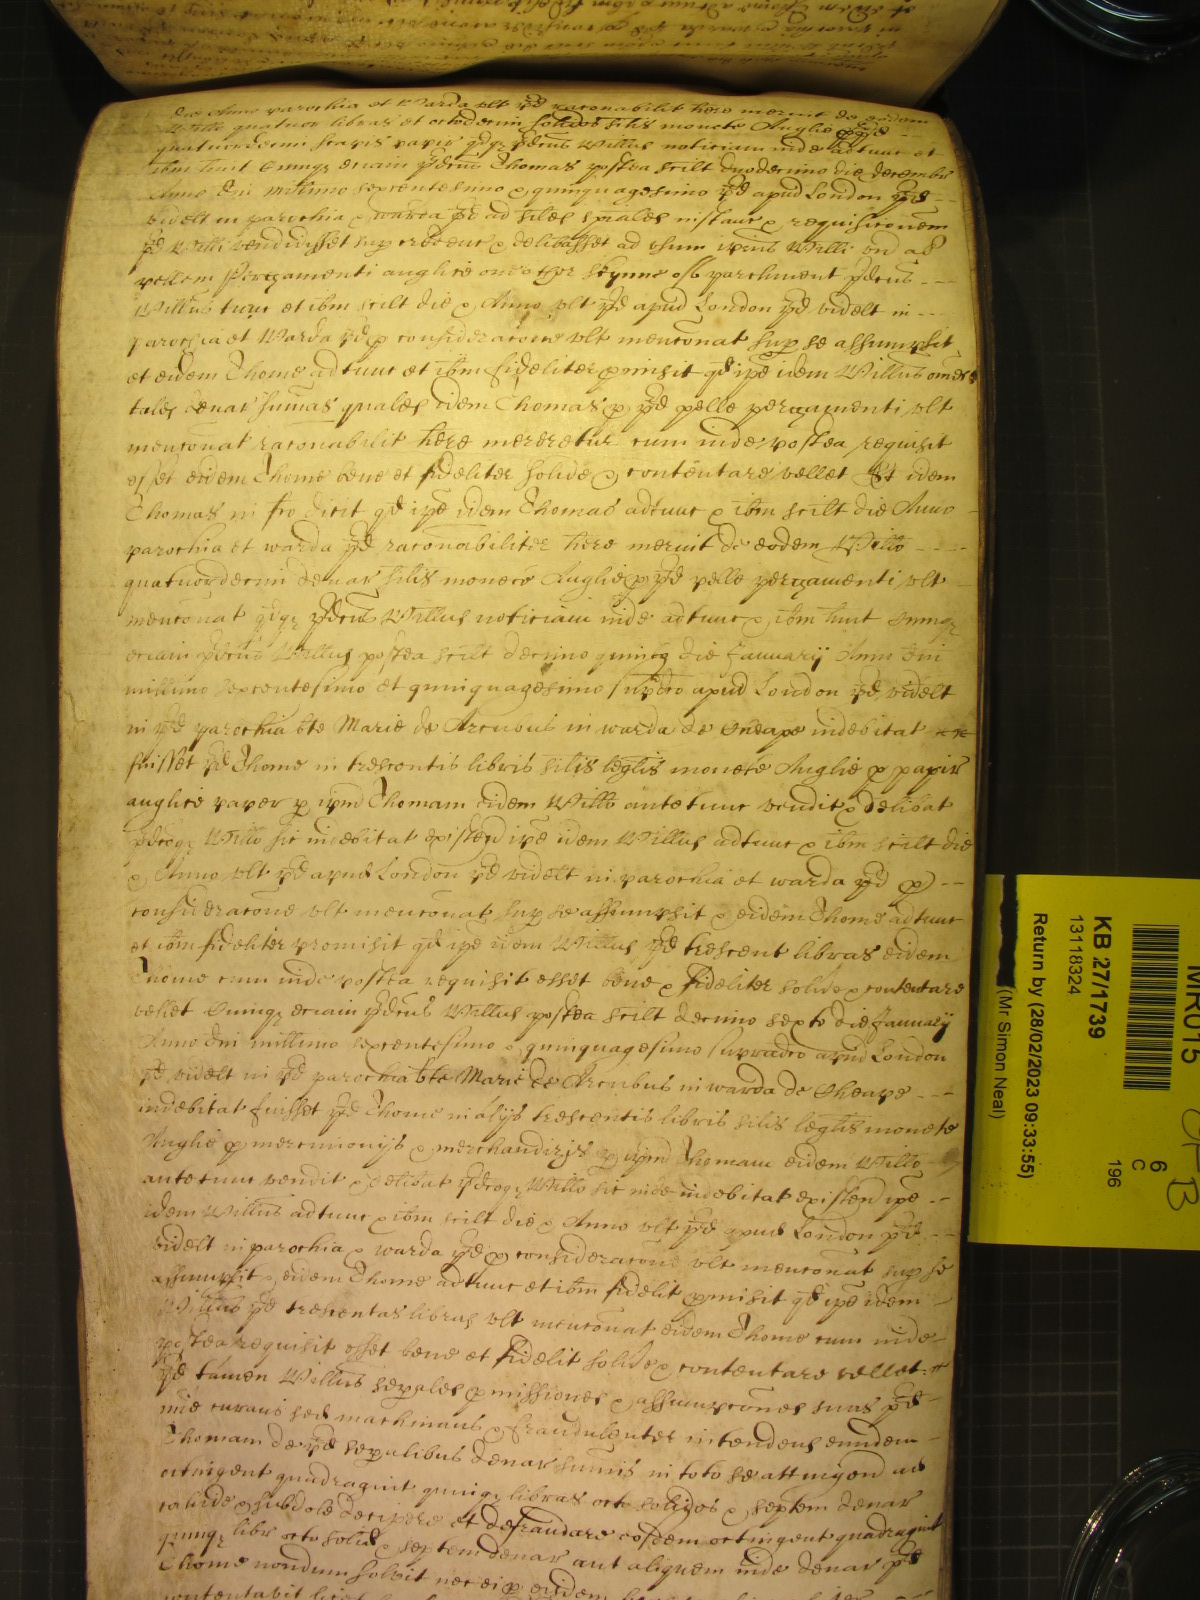 die Anno parochia et Warda ult pd raconabilit here meruit de eodem
Willo quatuor libras et octodecim solidos silis monete Anglie p pd
quatuordecim scapis papir qdqz pdcus Willus noticiam inde adtunc et
ibm huit Cumqz eciam pdcus Thomas postea scilt duodecimo die decembr
Anno dni millimo sexcentesimo & quinquagesimo pd apud London pd
videlt in parochia & warda pd ad silez spiales instanc & requisiconem
pd Willi vendidisset sup credenc & delibasset ad usum ipius Willi un al
pellem Pergamenti anglice one other skynne off parchment pdcus
Willus tunc et ibm scilt die & Anno ult pd apud London pd videlt in
parochia et Warda pd p consideracone ult menconat sup se assumpsit
et eidem Thome adtunc et ibm fideliter pmisit qd ipe idem Willus omes
tales denar sumas quales idem Thomas p pd pelle pergamenti ult
menconat raconabilit here mereretur cum inde postea requisit
esset eidem Thome bene et fideliter solide & contentare vellet Et idem
Thomas in fco dicit qd ipe idem Thomas adtunc & ibm scilt die Anno
parochia et warda pd raconabiliter here meruit de eodem Willo
quatuordecim denar silis monete Anglie p pd pelle pergamenti ult
menconat qdqz pdcus Willus noticiam inde adtunc & ibm huit Cumqz
eciam pdcus Willus postea scilt decimo quinto die January Anno dni
millimo sexcentesimo et quinquagesimo supdco apud London pd videlt
in pd parochia bte Marie de Arcubus in warda de Cheape indebitat
fuisset pd Thome in trescentis libris silis leglis monete Anglie p papir
anglice paper p ipm Thomam eidem Willo antetunc vendit & delibat
pdcoqz Willo sic indebitat existen ipe idem Willus adtunc & ibm scilt die
& Anno ult pd apud London pd videlt in parochia et warda pd p
consideracone ult menconat sup se assumpsit & eidem Thome adtunc
et ibm fideliter promisit qd ipe idem Willus pd trescent libras eidem
Thome cum inde postea requisit esset bene & fideliter solide & contentare
vellet Cumqz eciam pdcus Willus postea scilt decimo sexto die January
Anno dni millimo sexcentesimo & quinquagesimo supradco apud London
pd videlt in pd parochia bte Marie de Arcubus in warda de Cheape
indebitat fuisset pd Thome in alijs trescentis libris silis leglis monete
Anglie p mercimonijs & merchandizis p ipm Thomam eidem Willo
antetunc vendit & delibat pdcoqz Willo sic inde indebitat existen ipe
idem Willus adtunc & ibm scilt die & Anno ult pd apud London pd
videlt in parochia & warda pd p consideracone ult menconat sup se
assumpsit & eidem Thome adtunc et ibm fidelit pmisit qd ipe idem
Willus pd trescentas libras ult menconat eidem Thome cum inde
postea requisit esset bene et fidelit solide & contentare vellet
pd tamen Willus sepales pmissiones & assumpcones suas pd
mie curans sed machinans & fraudulenter intendens eundem
Thomam de pd sepalibus denar sumis in toto se attingen ad
octingent quadragint quinqz libras octo solidos & septem denar
callide & subdole decipere et defraudare easdem octingent quadragint
quinqz libr octo solid & septem denar aut aliquem inde denar pd
Thome nondum solvit nec ei p eisdem
contentavit licet
MR015
KB 27/1739
13118324
Return by (28/02/2023 09:33:55)
(Mr Simon Neal)
6
C
196